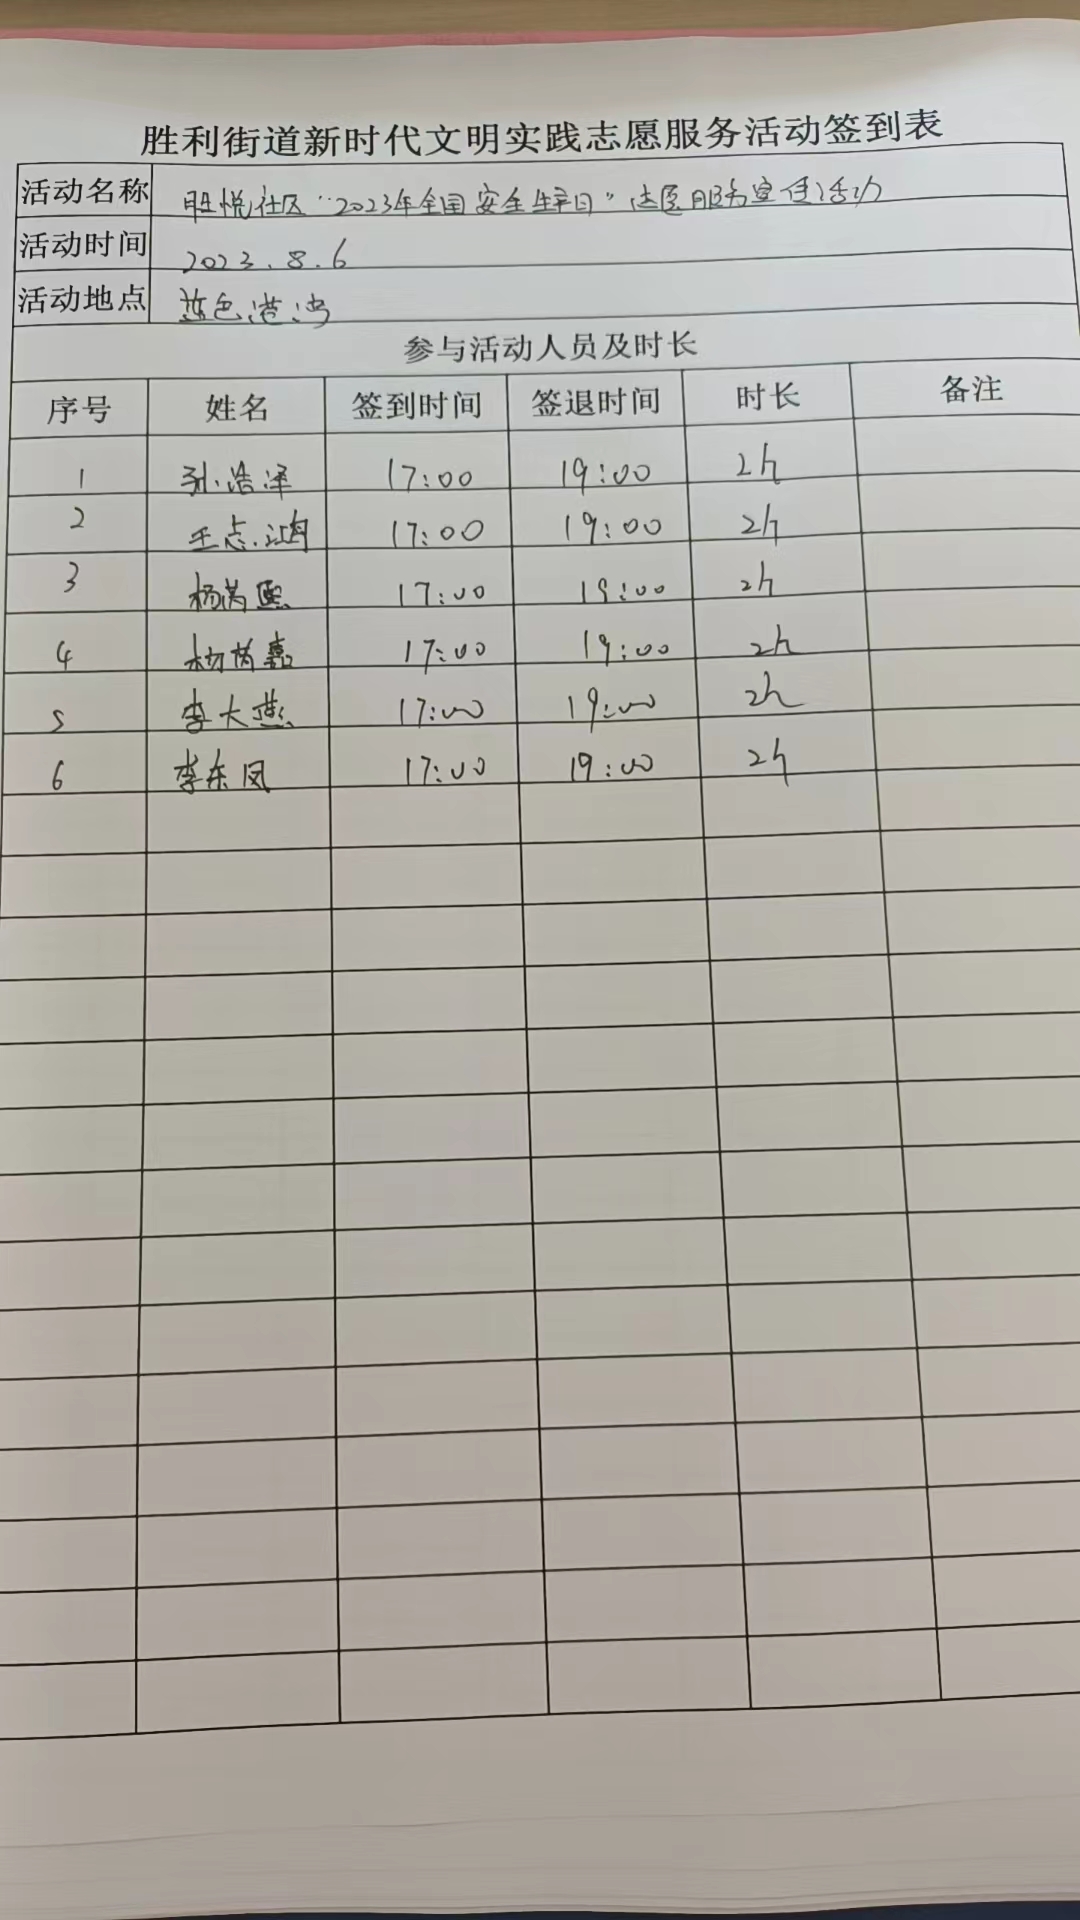 胜利街道新时代文明实践志愿服务活动签到表
活动名称 胜悦社区“2023年全国安全生产日”志愿服务宣传活动
活动时间 2023.8.6
活动地点 蓝色港湾
参与活动人员及时长
序号 姓名 签到时间 签退时间 时长 备注
1 孙浩泽 17:00 19:00 2h
2 王志鸿 17:00 19:00 2h
3 杨芮熙 17:00 19:00 2h
4 杨芮嘉 17:00 19:00 2h
5 李大燕 17:00 19:00 2h
6 李东凤 17:00 19:00 2h